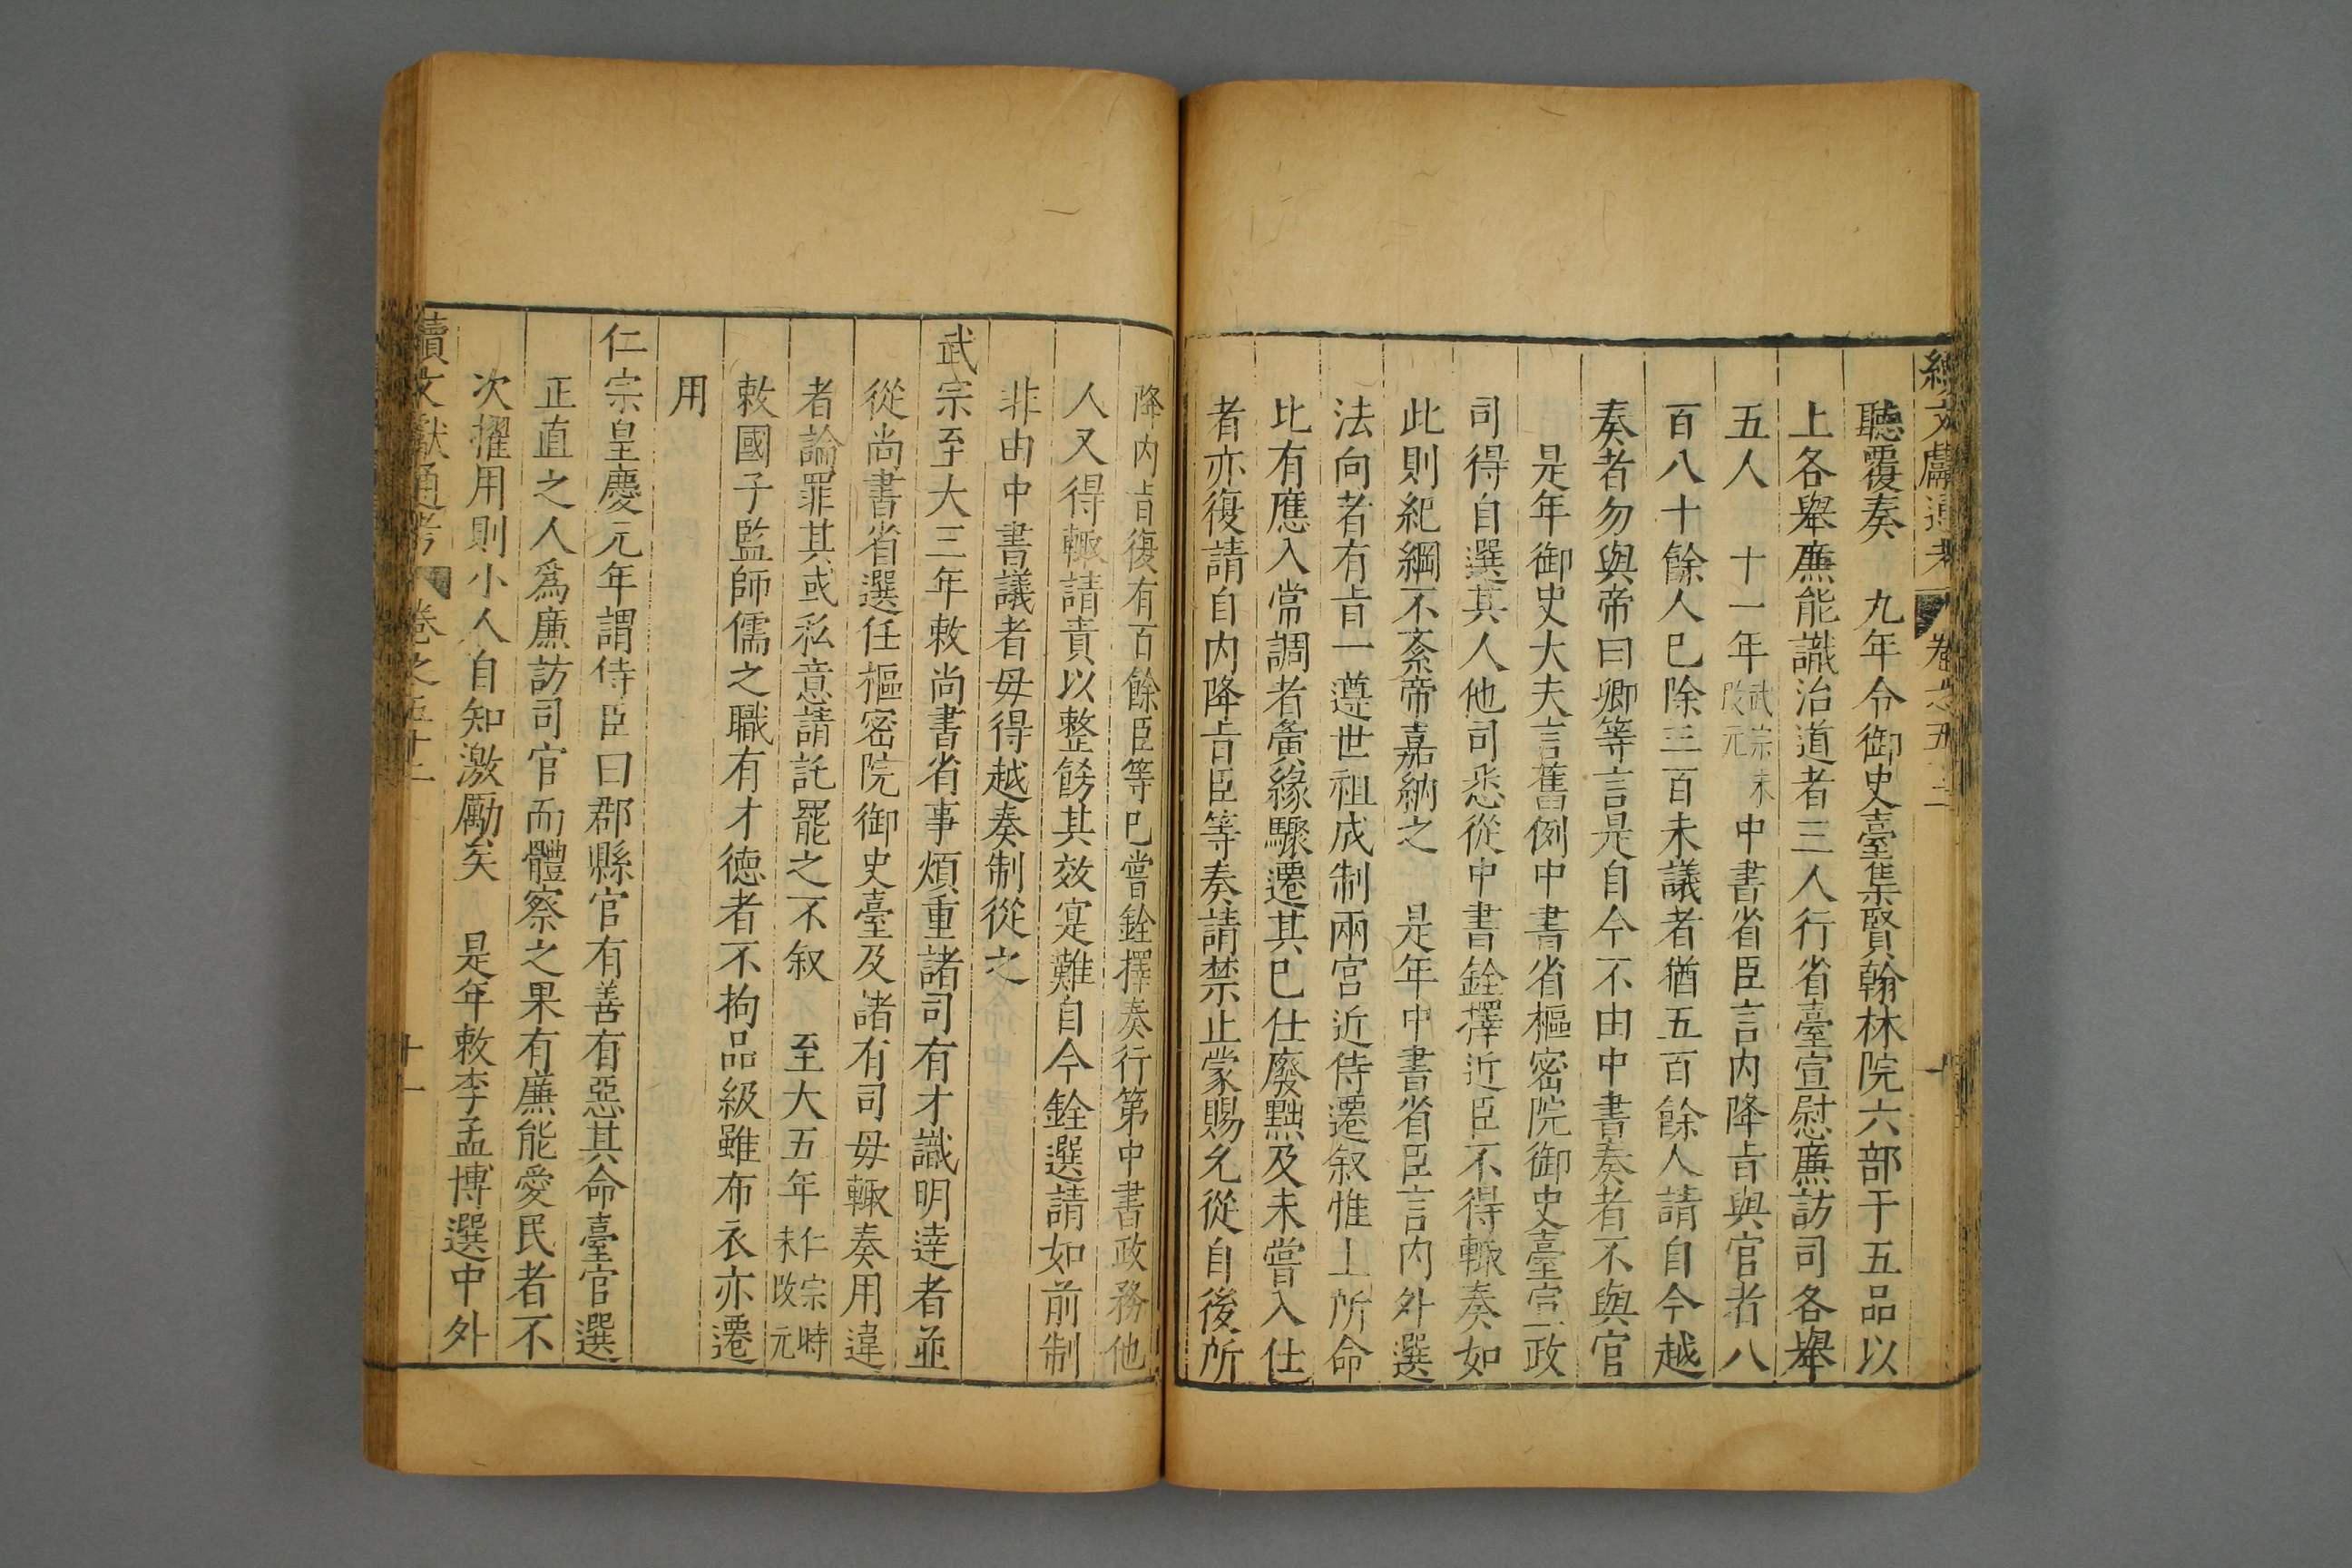 續文獻通考 卷之五十二 十
聽覆奏　九年令御史臺集賢翰林院六部于五品以
上各舉廉能識治道者三人行省臺宣慰廉訪司各舉
五人　十一年武宗未改元中書省臣言内降旨與官者八
百八十餘人巳除三百未議者猶五百餘人請自今越
奏者勿與帝曰卿等言是自今不由中書奏者不與官
是年御史大夫言舊例中書省樞密院御史臺宣政
司得自選其人他司悉從中書銓擇近臣不得輙奏如
此則紀綱不紊帝嘉納之　是年中書省臣言内外選
法向者有旨一遵世祖成制兩宮近侍遷叙惟上所命
比有應入常調者夤緣驟遷其巳仕廢黜及未嘗入仕
者亦復請自内降旨臣等奏請禁止蒙賜允從自後所
降内旨復有百餘臣等巳嘗銓擇奏行第中書政務他
人又得輙請責以整飭其效寔難自今銓選請如前制
非由中書議者毋得越奏制從之
武宗至大三年敕尚書省事煩重諸司有才識明達者並
從尚書省選任樞密院御史臺及諸有司毋輙奏用違
者論罪其或私意請託罷之不叙　至大五年仁宗時未改元
敕國子監師儒之職有才德者不拘品級雖布衣亦遷
用
仁宗皇慶元年謂侍臣曰郡縣官有善有惡其命臺官選
正直之人爲廉訪司官而體察之果有廉能愛民者不
次擢用則小人自知激勵矣　是年敕李孟博選中外
續文獻通考 卷之五十二 十一